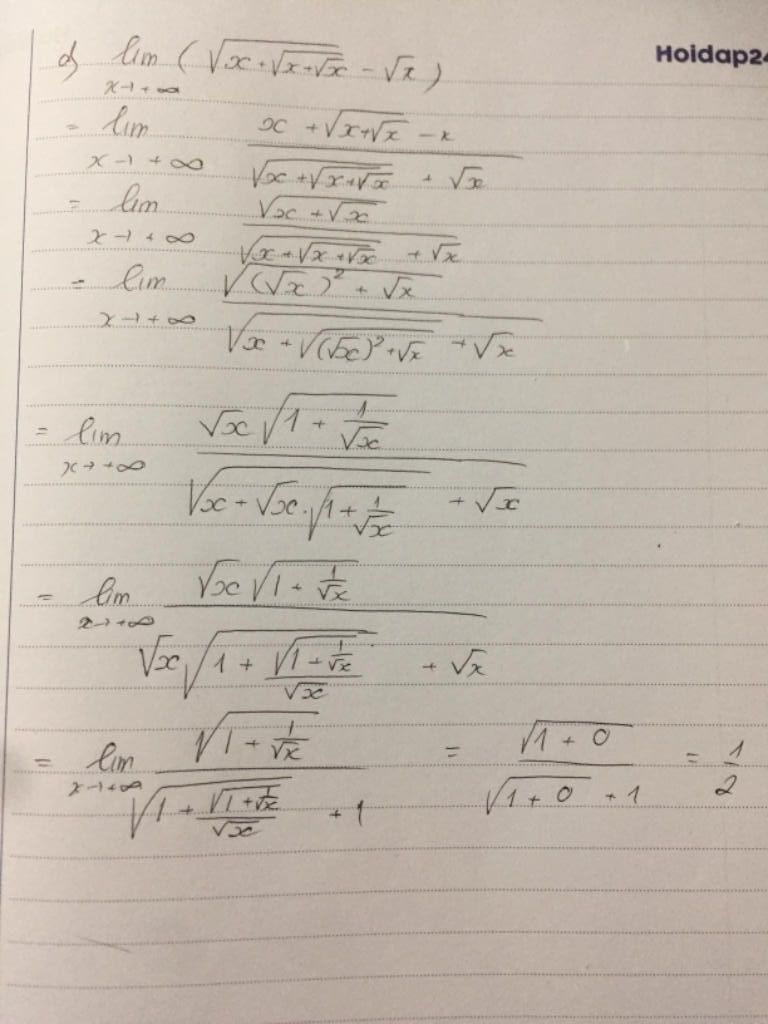 d) lim x→+∞ (√(x+√(x+√x)) - √x)
Hoidap24
= lim x→+∞ (x + √(x+√x) - x) / (√(x+√(x+√x)) + √x)
= lim x→+∞ √(x+√x) / (√(x+√(x+√x)) + √x)
= lim x→+∞ √((√x)² + √x) / (√(x + √((√x)²+√x)) + √x)
= lim x→+∞ (√x √(1 + 1/√x)) / (√(x + √x.√(1 + 1/√x)) + √x)
= lim x→+∞ (√x √(1 + 1/√x)) / (√x √(1 + √(1 + 1/√x)/√x) + √x)
= lim x→+∞ √(1 + 1/√x) / (√(1 + √(1 + 1/√x)/√x) + 1) = √(1 + 0) / (√(1 + 0) + 1) = 1/2